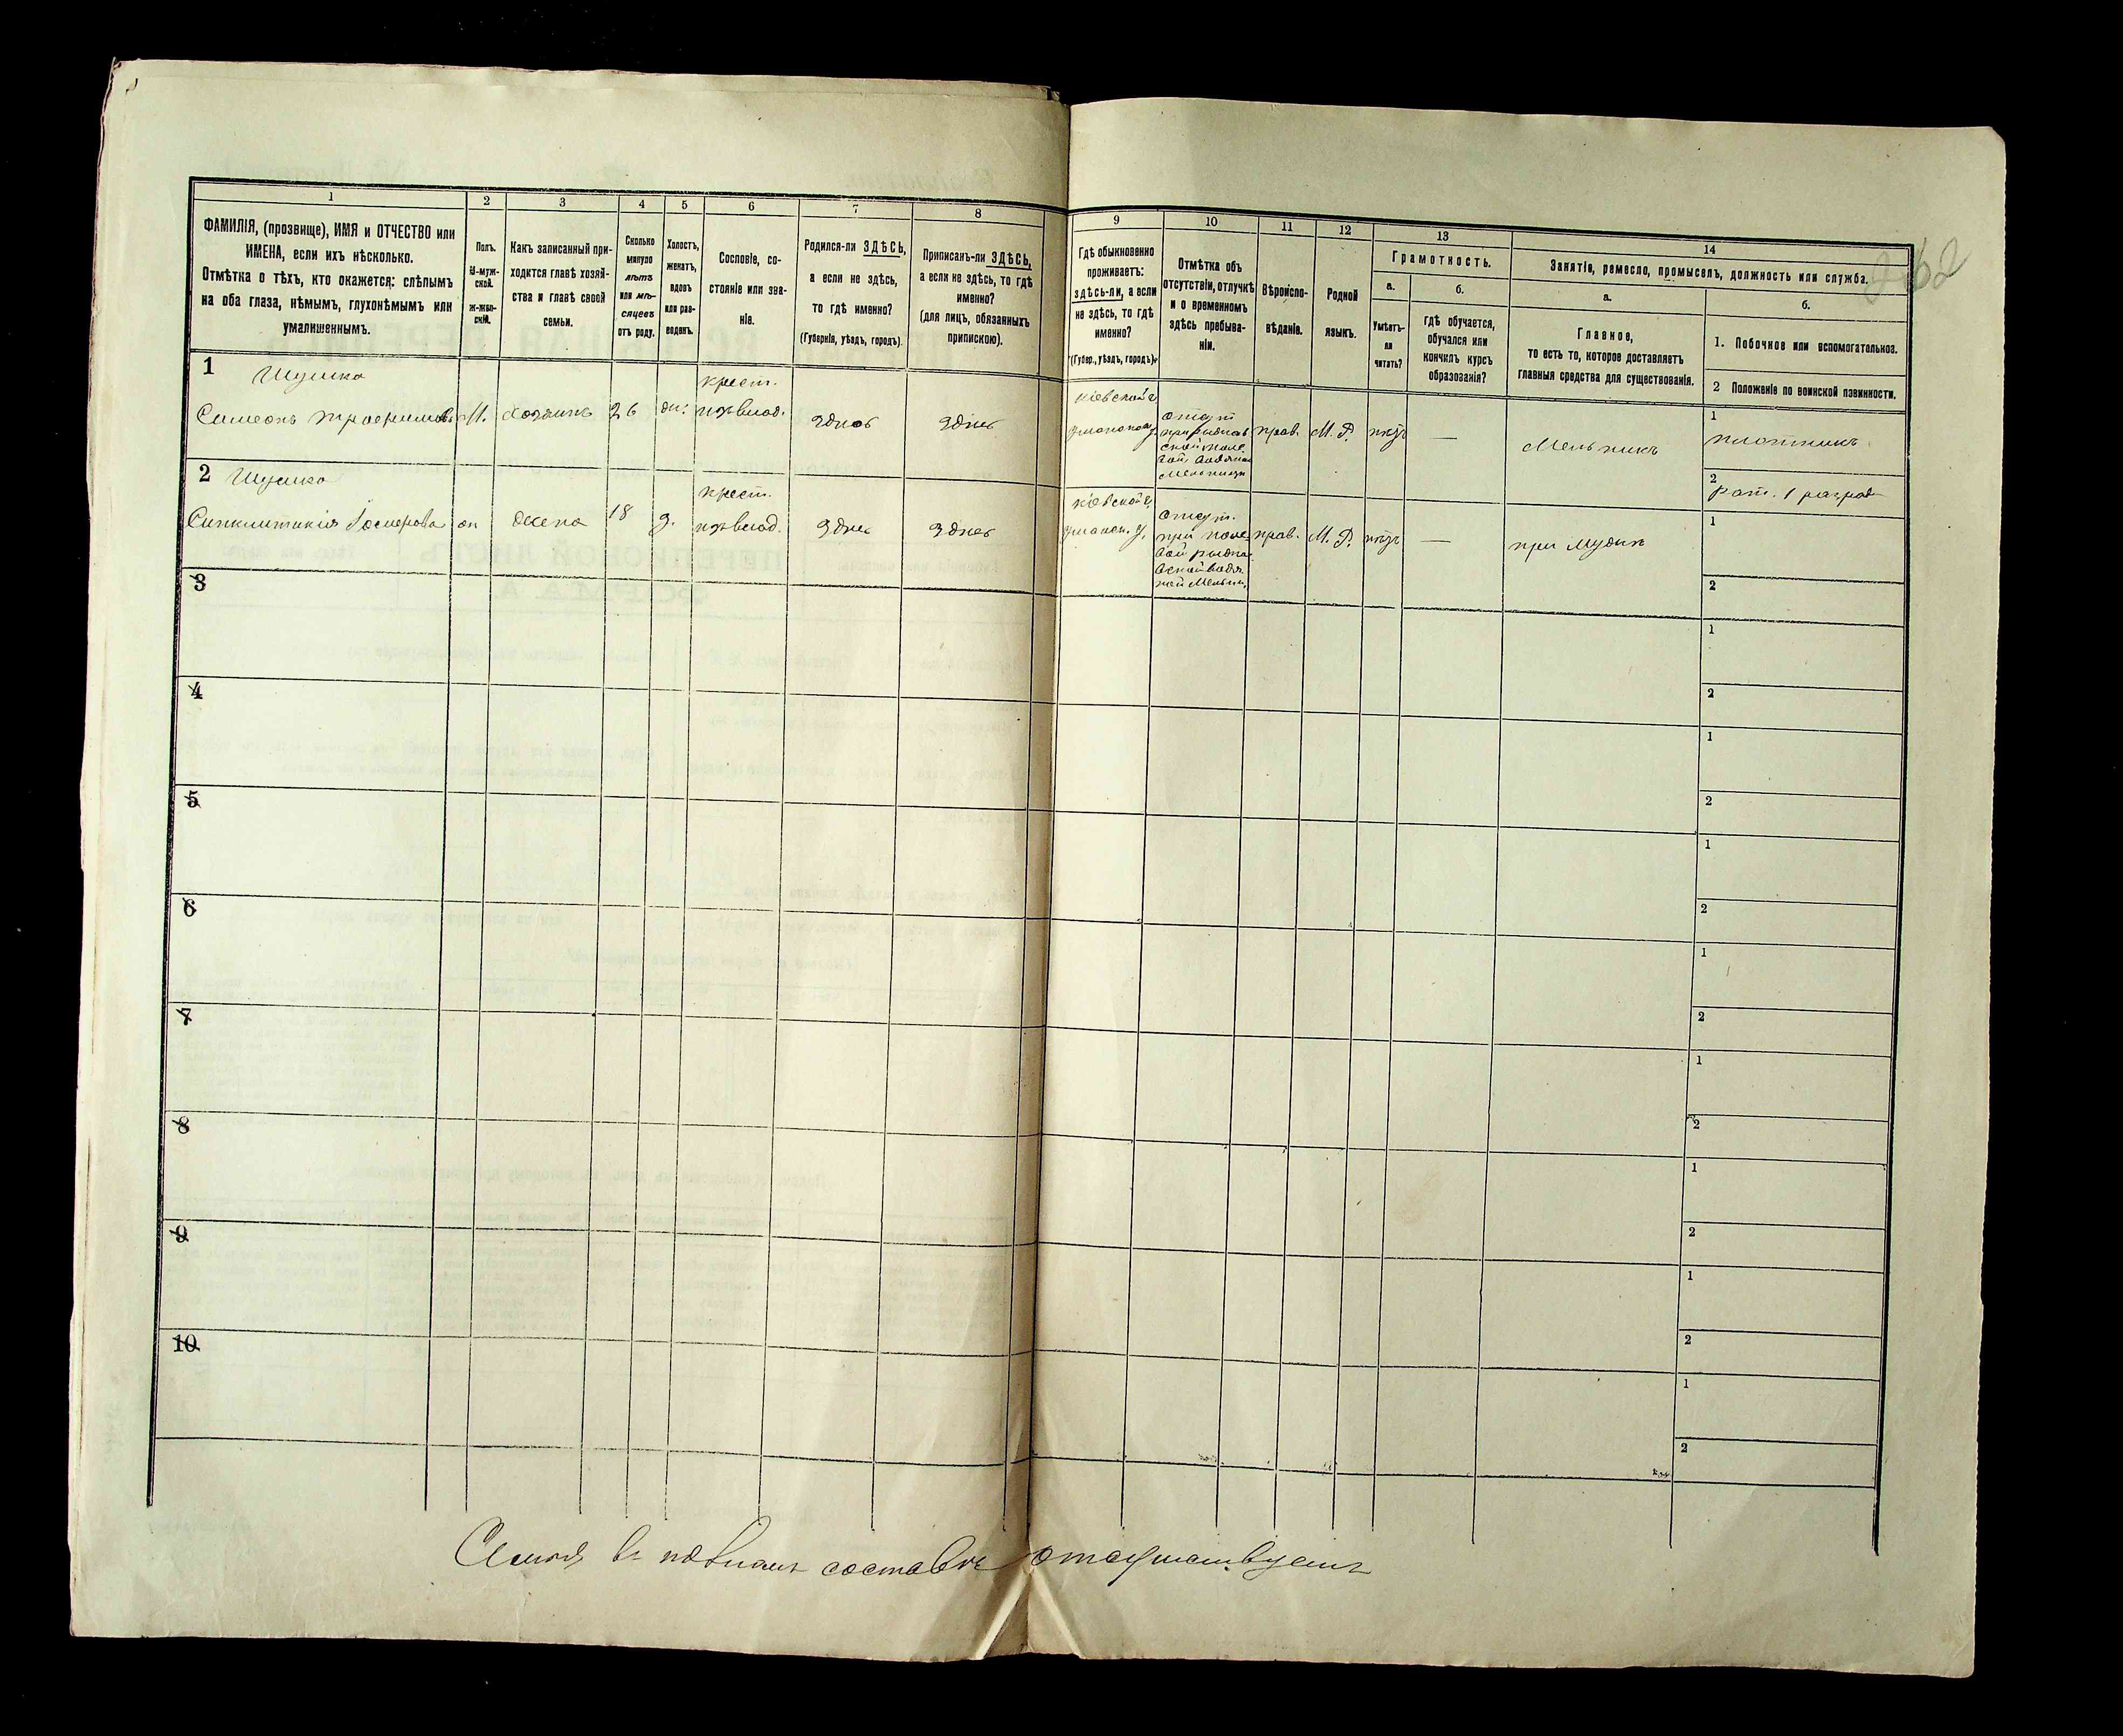 262
1
2
3
4
5
6
7
8
9
10
11
12
13
14
ФАМИЛІЯ, (прозвище), ИМЯ и ОТЧЕСТВО или
ИМЕНА, если ихъ нѣсколько.
Отмѣтка о тѣхъ, кто окажется: слѣпымъ
на оба глаза, нѣмымъ, глухонѣмымъ или
умалишеннымъ.
Полъ.
М-муж-
ской.
Ж-жен-
скій.
Какъ записанный при-
ходится главѣ хозяй-
ства и главѣ своей
семьи.
Сколько
минуло
лѣтъ
или мѣ-
сяцевъ
отъ роду.
Холостъ,
женатъ,
вдовъ
или раз-
веденъ.
Сословіе, со-
стояніе или зва-
ніе.
Родился-ли ЗДѢСЬ,
а если не здѣсь,
то гдѣ именно?
(Губернія, уѣздъ, городъ).
Приписанъ-ли ЗДѢСЬ,
а если не здѣсь, то гдѣ
именно?
(для лицъ, обязанныхъ
припискою).
Гдѣ обыкновенно
проживаетъ:
здѣсь-ли, а если
не здѣсь, то гдѣ
именно?
(Губер., уѣздъ, городъ).
Отмѣтка объ
отсутствіи, отлучкѣ
и о временномъ
здѣсь пребыва-
ніи.
Вѣроиспо-
вѣданіе.
Родной
языкъ.
Грамотность.
а.
Умѣетъ-
ли
читать?
б.
Гдѣ обучается,
обучался или
кончилъ курсъ
образованія?
Занятіе, ремесло, промыселъ, должность или служба.
а.
Главное,
то есть то, которое доставляетъ
главныя средства для существованія.
б.
1. Побочное или вспомогательное.
2 Положеніе по воинской повинности.
1
Шушко
Симеонъ Трофимовъ
М.
Хозяинъ
26
жн.
крест.
изъ влад.
Здѣсь
Здѣсь
Кіевской г.
Уманск. у.
отсут.
прав.
М. Р.
нѣтъ
—
Мельникъ
1
плотникъ
2
рат. 1 разряд
2 Шушко
Синклитикія
он
жена
18
з.
крест.
изъ влад.
Здѣсь
Здѣсь
Кіевской г.
Уманск. у.
отсут.
при
прав.
М. Р.
нѣтъ
—
при мужѣ
1
2
3
1
2
4
1
2
5
1
2
6
1
2
7
1
2
8
1
2
9
1
2
10
1
2
Семья въ полномъ составѣ отсутствуетъ